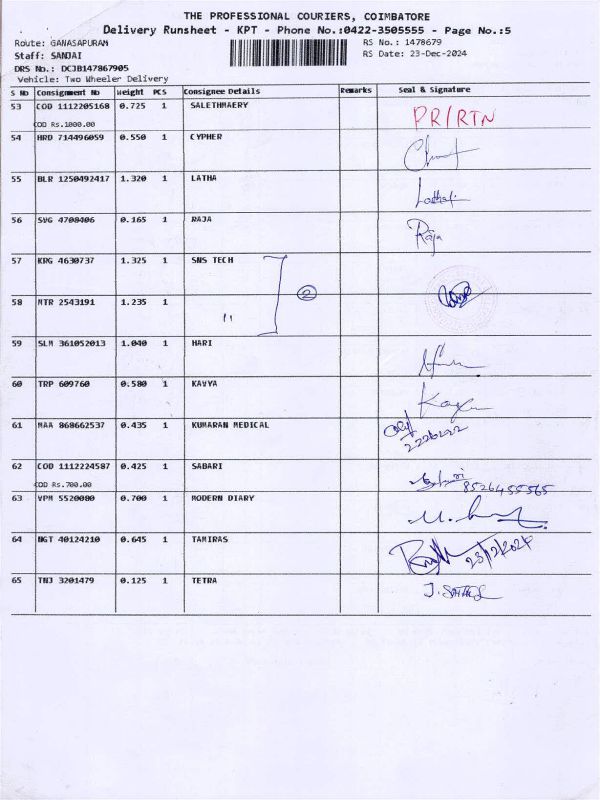 THE PROFESSIONAL COURIERS, COIMBATORE
Delivery Runsheet - KPT - Phone No.:0422-3505555 - Page No.:5
Route: GANASAPURAM
RS No.: 1478679
Staff: SANJAI
RS Date: 23-Dec-2024
DRS No.: DCJB147867905
Vehicle: Two Wheeler Delivery
S No Consignment No Weight PCS Consignee Details Remarks Seal & Signature
53 COD 1112205168 0.725 1 SALETHMAERY PR/RTN
COD Rs.1000.00
54 HRD 714496059 0.550 1 CYPHER
55 BLR 1250492417 1.320 1 LATHA
56 SVG 4708406 0.165 1 RAJA Raja
57 KRG 4630737 1.325 1 SNS TECH
2
58 MTR 2543191 1.235 1 "
59 SLM 361052013 1.040 1 HARI
60 TRP 609760 0.580 1 KAVYA
61 MAA 868662537 0.435 1 KUMARAN MEDICAL
62 COD 1112224587 0.425 1 SABARI 8526455565
COD Rs.700.00
63 VPM 5520080 0.700 1 MODERN DIARY
64 NGT 40124210 0.645 1 TAMIRAS 23/12/2024
65 TNJ 3201479 0.125 1 TETRA